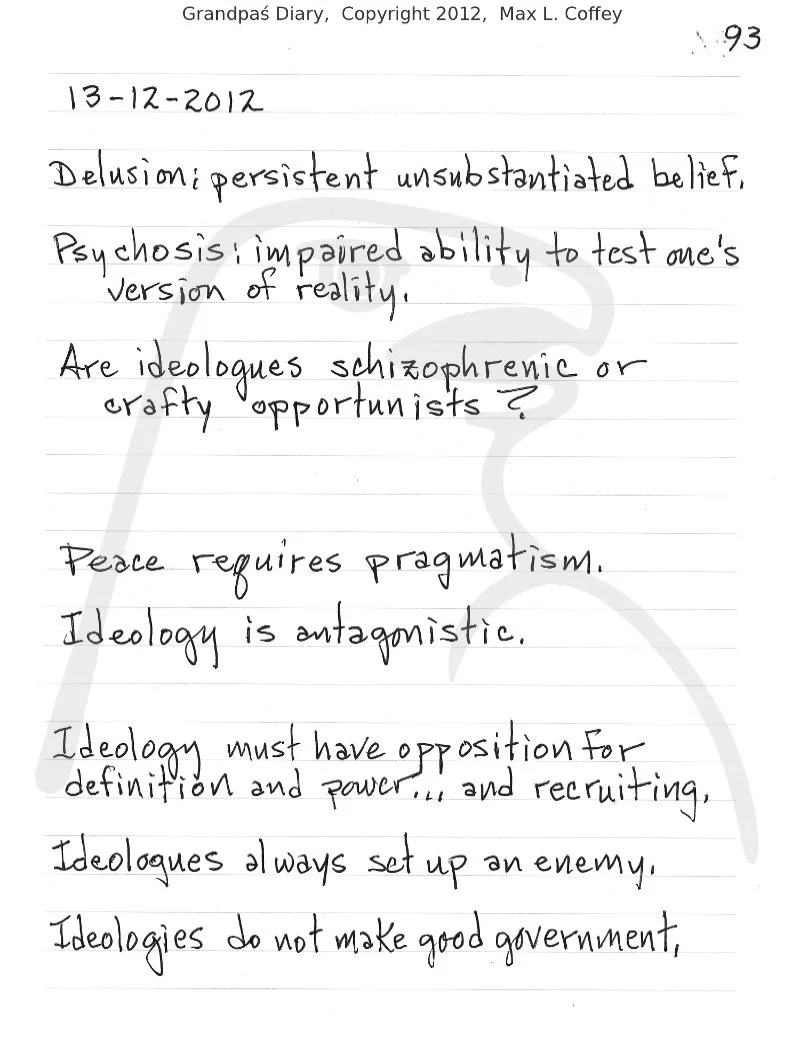 Grandpaś Diary, Copyright 2012, Max L. Coffey
93
13-12-2012
Delusion: persistent unsubstantiated belief.
Psychosis: impaired ability to test one's
version of reality.
Are ideologues schizophrenic or
crafty opportunists?
Peace requires pragmatism.
Ideology is antagonistic.
Ideology must have opposition for
definition and power... and recruiting.
Ideologues always set up an enemy.
Ideologies do not make good government.